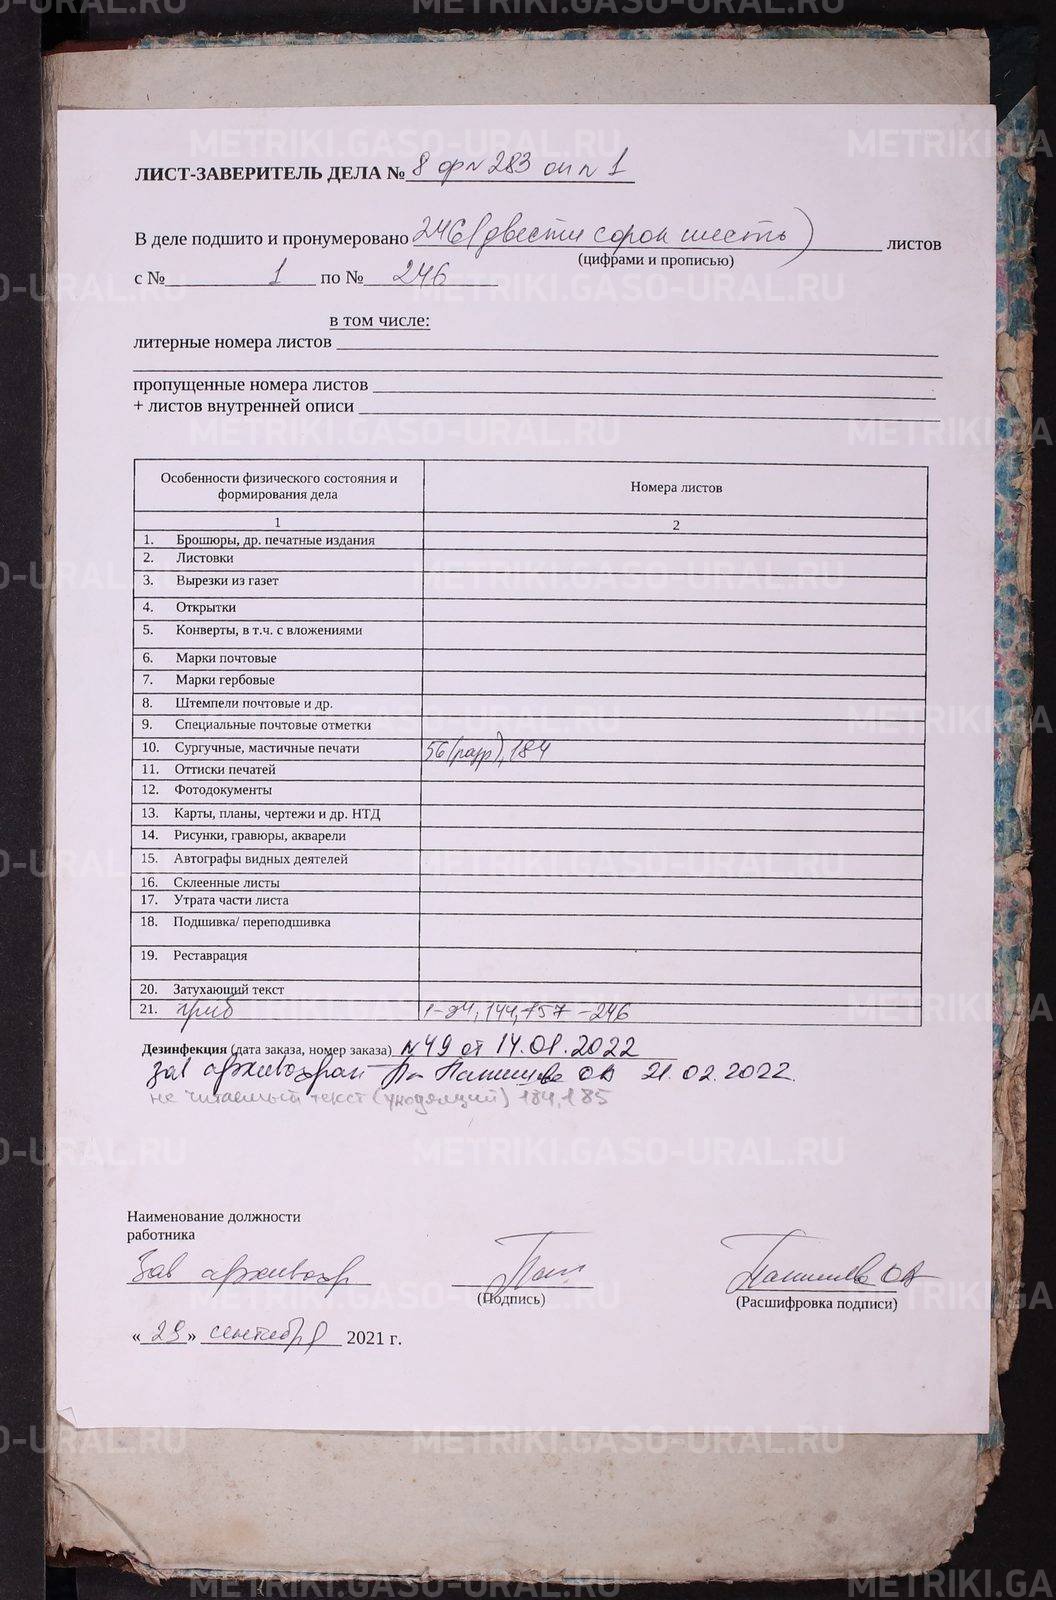 ЛИСТ-ЗАВЕРИТЕЛЬ ДЕЛА № 8 ф№283 оп№1
В деле подшито и пронумеровано 246 (двести сорок шесть) листов
(цифрами и прописью)
с № 1 по № 246
в том числе:
литерные номера листов
пропущенные номера листов
+ листов внутренней описи
Особенности физического состояния и формирования дела Номера листов
1 2
1. Брошюры, др. печатные издания
2. Листовки
3. Вырезки из газет
4. Открытки
5. Конверты, в т.ч. с вложениями
6. Марки почтовые
7. Марки гербовые
8. Штемпели почтовые и др.
9. Специальные почтовые отметки
10. Сургучные, мастичные печати 56 (разр), 184
11. Оттиски печатей
12. Фотодокументы
13. Карты, планы, чертежи и др. НТД
14. Рисунки, гравюры, акварели
15. Автографы видных деятелей
16. Склеенные листы
17. Утрата части листа
18. Подшивка/ переподшивка
19. Реставрация
20. Затухающий текст
21. гриб 144, 157-246
Дезинфекция (дата заказа, номер заказа) №49 от 14.01.2022
зав архивохран ОА 21.02.2022.
не читаемый текст (уходящий) 184,185
Наименование должности
работника
Зав архивохр
(Подпись) (Расшифровка подписи)
«29» сентября 2021 г.
METRIKI.GASO-URAL.RU